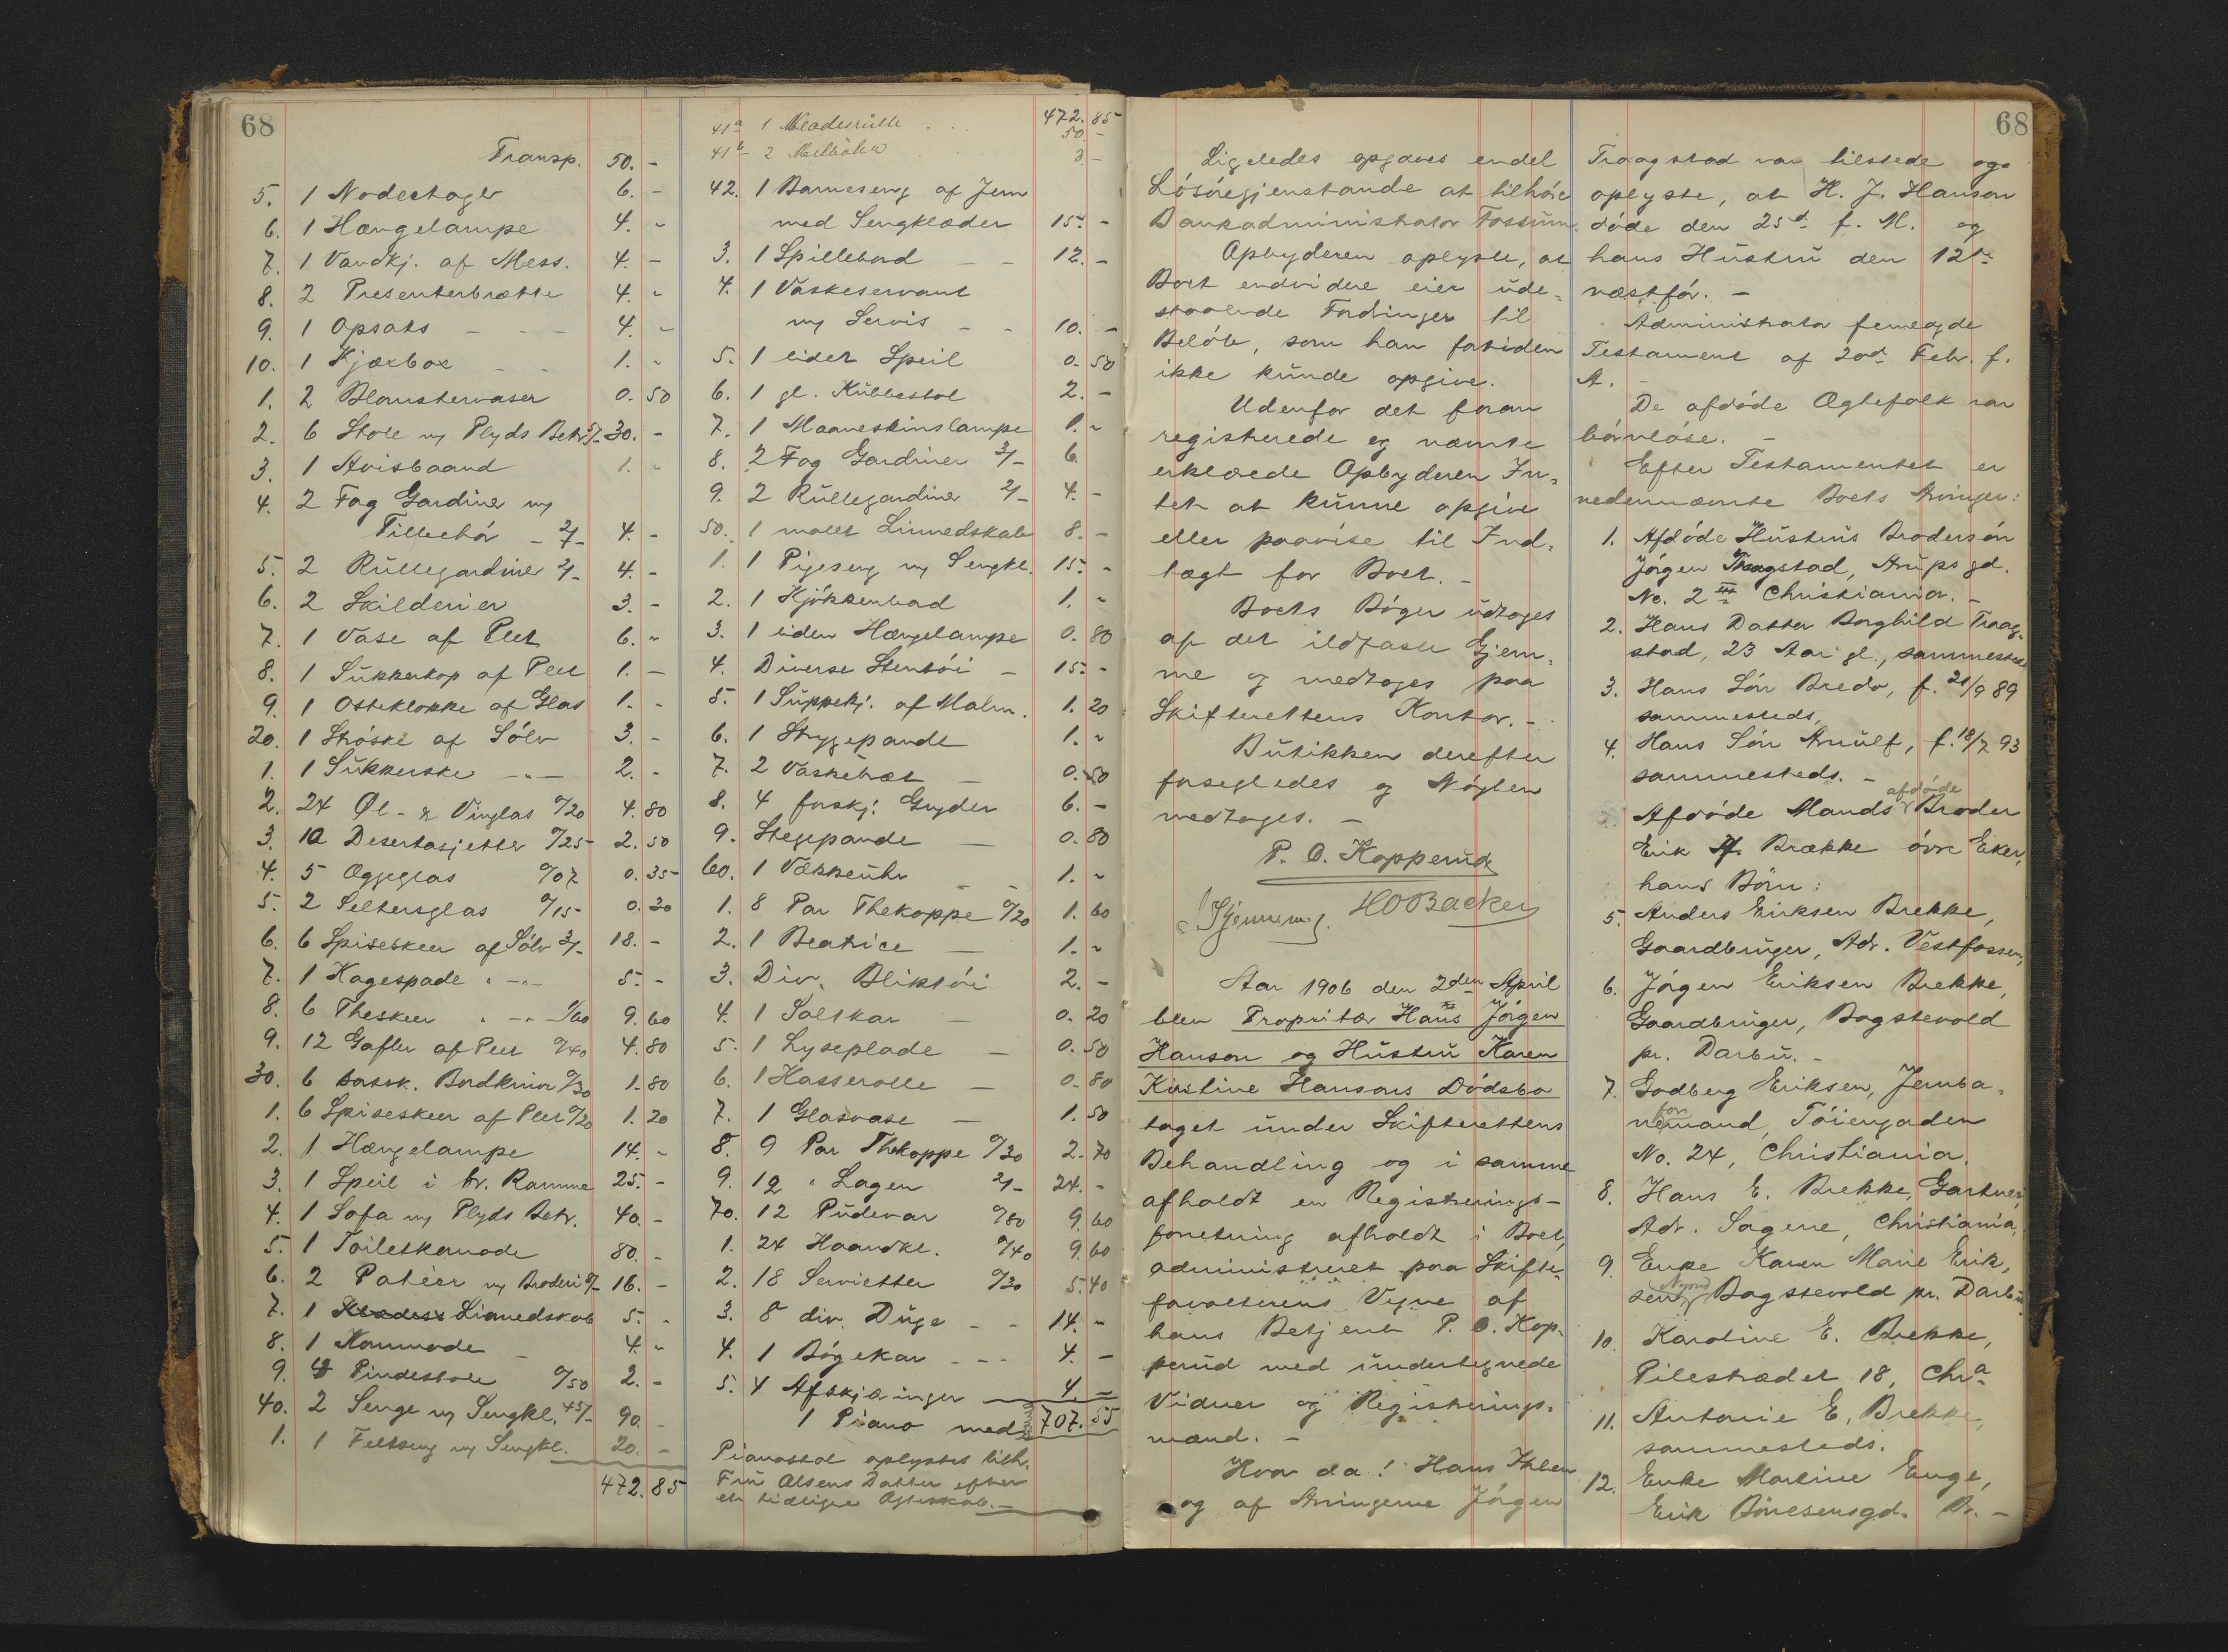 68
Transp. 50. -
5. 1 Nodeetager 6. -
6. 1 Hængelampe 4. -
7. 1 Vandkj. af Mess. 4. -
8. 2 Presenterbrætte 4. -
9. 1 Opsats - - - 4. -
10. 1 Kjæxbox - - 1. -
1. 2 Blomstervaser 0. 50
2. 6 Stole m/ Plyds Betr. 5/- 30. -
3. 1 Avisbaand 1. -
4. 2 Fag Gardiner m/
Tilbehör - 2/- 4. -
5. 2 Rullegardiner 2/- 4. -
6. 2 Skilderier 3. -
7. 1 Vase af Plet 6. -
8. 1 Sukkerkop af Plet 1. -
9. 1 Osteklokke af Glas 1. -
20. 1 Ströske af Sölv 3. -
1. 1 Sukkerske -"- 2. -
2. 24 Øl- & Vinglas 0/20 4. 80
3. 10 Desertasjetter 0/25 2. 50
4. 5 Eggeglas 0/07 0. 35
5. 2 Seltersglas 0/15 0. 30
6. 6 Spiseskeer af Sölv 3/- 18. -
7. 1 Kagespade " -"- 5. -
8. 6 Theskeer " -"- 1/60 9. 60
9. 12 Gafler af Plet 0/40 4. 80
30. 6 Bordknive 0/30 1. 80
1. 6 Spiseskeer af Plet 0/20 1. 20
2. 1 Hængelampe 14. -
3. 1 Speil i br. Ramme 25. -
4. 1 Sofa m/ Plyds Betr. 40. -
5. 1 Toiletkomode 80. -
6. 2 Patéer m/ Broderi 8/- 16. -
7. 1 Linnedskab 5. -
8. 1 Kommode - 4. -
9. 4 Pindestole 0/50 2. -
40. 2 Senge m/ Sengkl. 45/- 90. -
1. 1 Feltseng m/ Sengkl. 20. -
472. 85
472. 85
41a 1 Kladesrulle . . . 50 -
41b 2 3 -
42. 1 Barneseng af Jern
med Sengklæder 15. -
3. 1 Spillebord - - 12. -
4. 1 Vaskeservant
m/ Servis - - 10. -
5. 1 lidet Speil 0. 50
6. 1 gl. Kubbestol 2. -
7. 1 Maaneskinslampe 1. -
8. 2 Fag Gardiner 3/- 6
9. 2 Rullegardiner 2/- 4. -
50. 1 malet Linnedskab 8. -
1. 1 Pigeseng m/ Sengkl. 15. -
2. 1 Kjökkenbord 1. -
3. 1 liden Hængelampe 0. 80
4. Diverse Stentöi - 15. -
5. 1 Suppekj. af Malm. 1. 20
6. 1 Strygepande 1. -
7. 2 Vaskebræt - 0. 50
8. 4 forskj. Gryder 6. -
9. Stegepande - 0. 80
60. 1 Vækkeuhr - - 1. -
1. 8 Par Thekoppe 0/20 1. 60
2. 1 Beatrice - 1. -
3. Div. Bliktöi 2. -
4. 1 Saltkar - 0. 20
5. 1 Lyseplade - 0. 50
6. 1 Kasserolle - 0. 80
7. 1 Glasvase - 1. 50
8. 9 Par Thekoppe 0/30 2. 70
9. 12 " Lagen 2/- 24. -
70. 12 Pudevar 0/80 9. 60
1. 24 Haandkl. 0/40 9. 60
2. 18 Servietter 0/30 5. 40
3. 8 div. Duge - - 14. -
4. 1 Bögekar - - - 4. -
5. 4 Afskjæringer 4. -
1 Piano med 707. 55
Pianostol oplystes tilh.
Fru Olsens Datter efter
et tidligere Ægteskab. -
68
Ligeledes opgaves endel
Lösöregjenstande at tilhöre
Bankadministrator Fossum.
Opbyderen oplyste, at
Boet endvidere eier ude-
staaende Fordringer til
Belöb, som han fortiden
ikke kunde opgive.
Udenfor det foran
registrerede og nævnte
erklærede Opbyderen In-
tet at kunne opgive
eller paavise til Ind-
tægt for Boet. -
Boets Böger udtoges
af det ildfaste Gjem-
me og medtoges paa
Skifterettens Kontor. -
Butikken derefter
forsegledes og Nöglen
medtoges. -
P. O. Kopperud
HOBacker
Aar 1906 den 2den April
blev Proprietær Hans Jörgen
Hanson og Hustru Karen
Kirstine Hansons Dödsbo
taget under Skifterettens
Behandling og i samme
afholdt en Registrerings-
forretning afholdt i Boet,
administreret paa Skifte-
forvalterens Vegne af
hans Betjent P. O. Kop-
perud med undertegnede
Vidner og Registrerings-
mænd. -
Hvor da! Hans Ihlen
og af Arvingerne Jörgen
Traagstad var tilstede og
oplyste, at H. J. Hanson
döde den 25d. f. M. og
hans Hustru den 12te
næstför. -
Administrator fremlagde
Testament af 20d. Febr. f.
A. -
De afdöde Ægtefolk var
börnlöse. -
Efter Testamentet er
nedennævnte Boets Arvinger:
1. Afdöde Hustrus Brodersön
Jörgen Traagstad, Arupsgd.
No. 2 III Christiania. -
2. Hans Datter Borghild Traag-
stad, 23 Aar gl., sammesteds
3. Hans Sön Bredo, f. 21/9 89
sammesteds,
4. Hans Sön Arnulf, f. 18/7 93
sammesteds. -
afdöde
Afdöde Mands Broder
Erik Brække övre Eker,
hans Börn:
5. Anders Eriksen Brekke,
Gaardbruger, Adr. Vestfossen,
6. Jörgen Eriksen Brekke,
Gaardbruger, Bagstevold
pr. Darbu. -
7. Godberg Eriksen, Jernba-
for
nemand, Töiengaden
No. 24, Christiania.
8. Hans E. Brekke, Gartner,
Adr. Sagene, Christiania,
9. Enke Karen Marie Erik-
sen, Bagstevold pr. Darbu
10. Karoline E. Brekke,
Pilestrædet 18, Chra
11. Antonie E. Brekke,
sammesteds.
12. Enke Martine Enge,
Erik Börresensgd. Dr. -